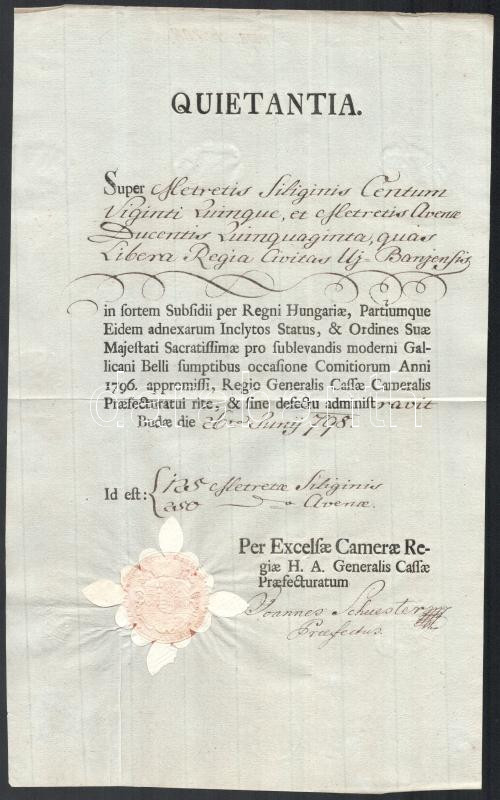 QUIETANTIA.
Super Metretis Siliginis Centum
Viginti Quinque, et Metretis Avenæ
Ducentis Quinquaginta, quas
Libera Regia Civitas Uj-Banjensis
in sortem Subsidii per Regni Hungariæ, Partiumque
Eidem adnexarum Inclytos Status, & Ordines Suæ
Majestati Sacratissimæ pro sublevandis moderni Gal-
licani Belli sumptibus occasione Comitiorum Anni
1796. appromissi, Regio Generalis Cassæ Cameralis
Præfecturatui rite, & sine defectu administravit
Budæ die 26ta Junij 798
Id est: { 125 Metretæ Siliginis
250 Avenæ.
Per Excelsæ Cameræ Re-
giæ H. A. Generalis Cassæ
Præfecturatum
Joannes Schuester mp
Præfectus.